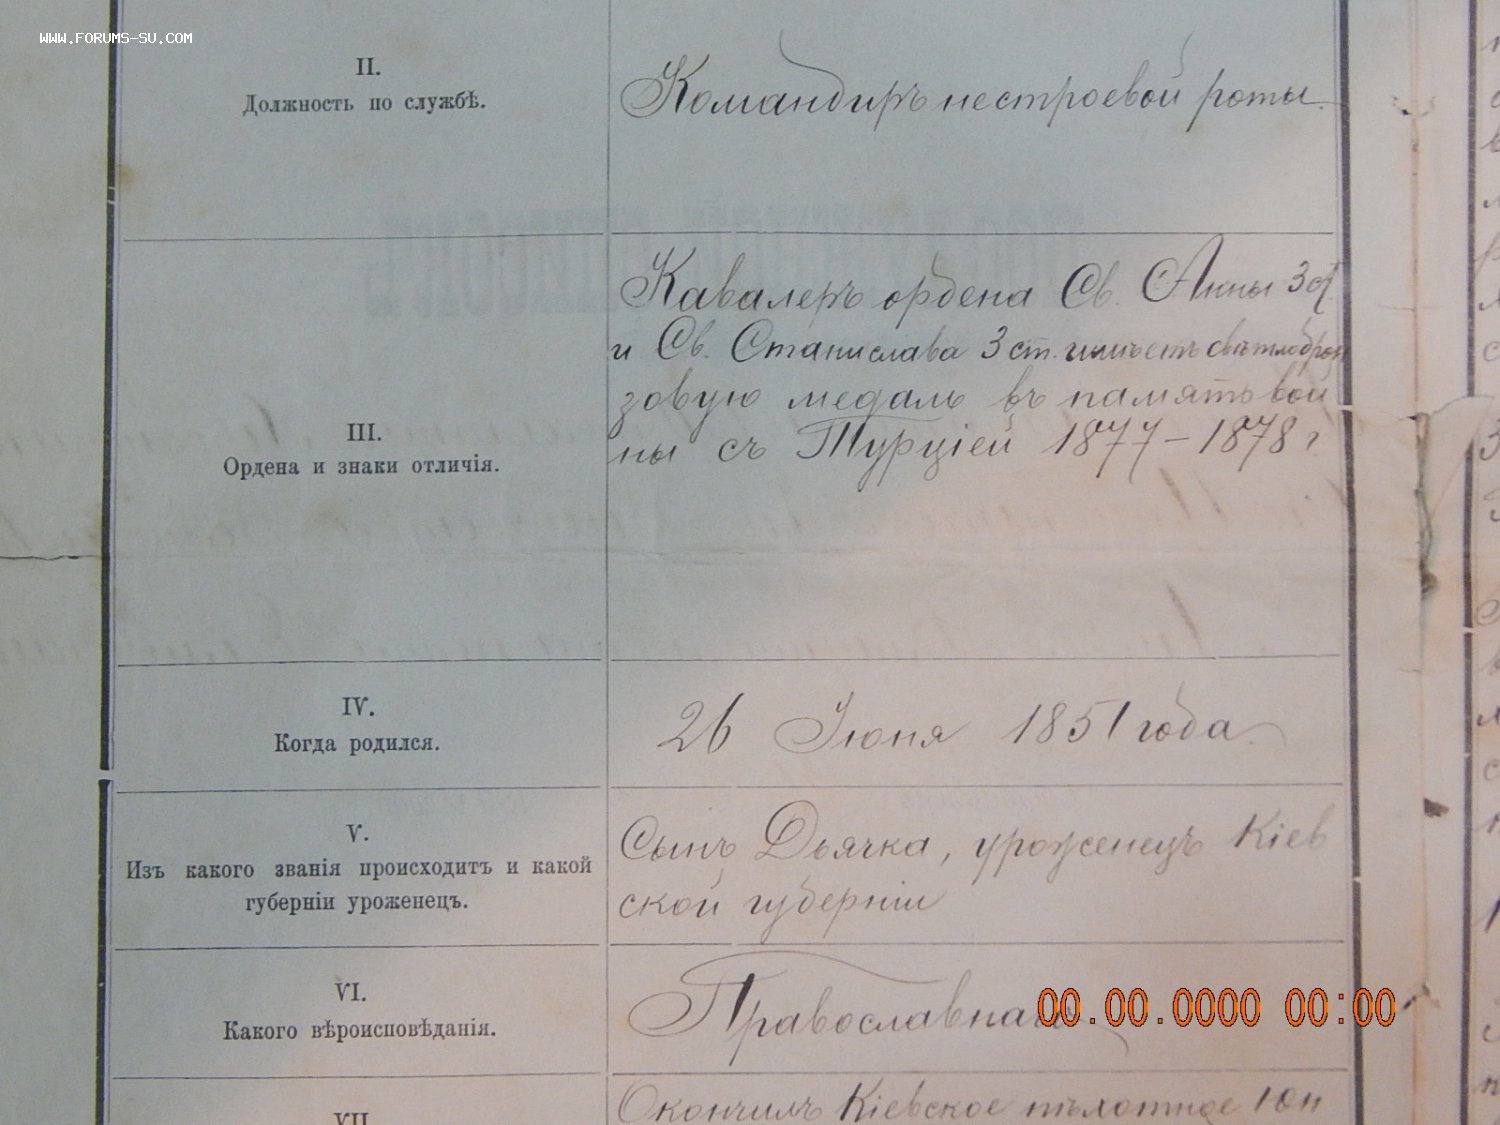 WWW.FORUMS-SU.COM
II.
Должность по службѣ.
Командиръ нестроевой роты.
III.
Ордена и знаки отличія.
Кавалеръ ордена Св. Анны 3 ст
и Св. Станислава 3 ст. имѣетъ свѣтлоброн
зовую медаль въ память вой
ны съ Турціей 1877–1878 г
IV.
Когда родился.
26 Іюня 1851 года.
V.
Изъ какого званія происходитъ и какой
губерніи уроженецъ.
Сынъ Дьячка, уроженецъ Кіев
ской губерніи
VI.
Какого вѣроисповѣданія.
Православнаго
00.00.0000 00:00
VII
Окончилъ Кіевское пѣхотное Юн